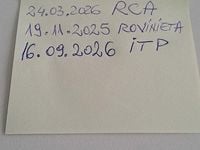 24.03.2026 RCA
19.11.2025 ROVINIETA
16.09.2026 iTP